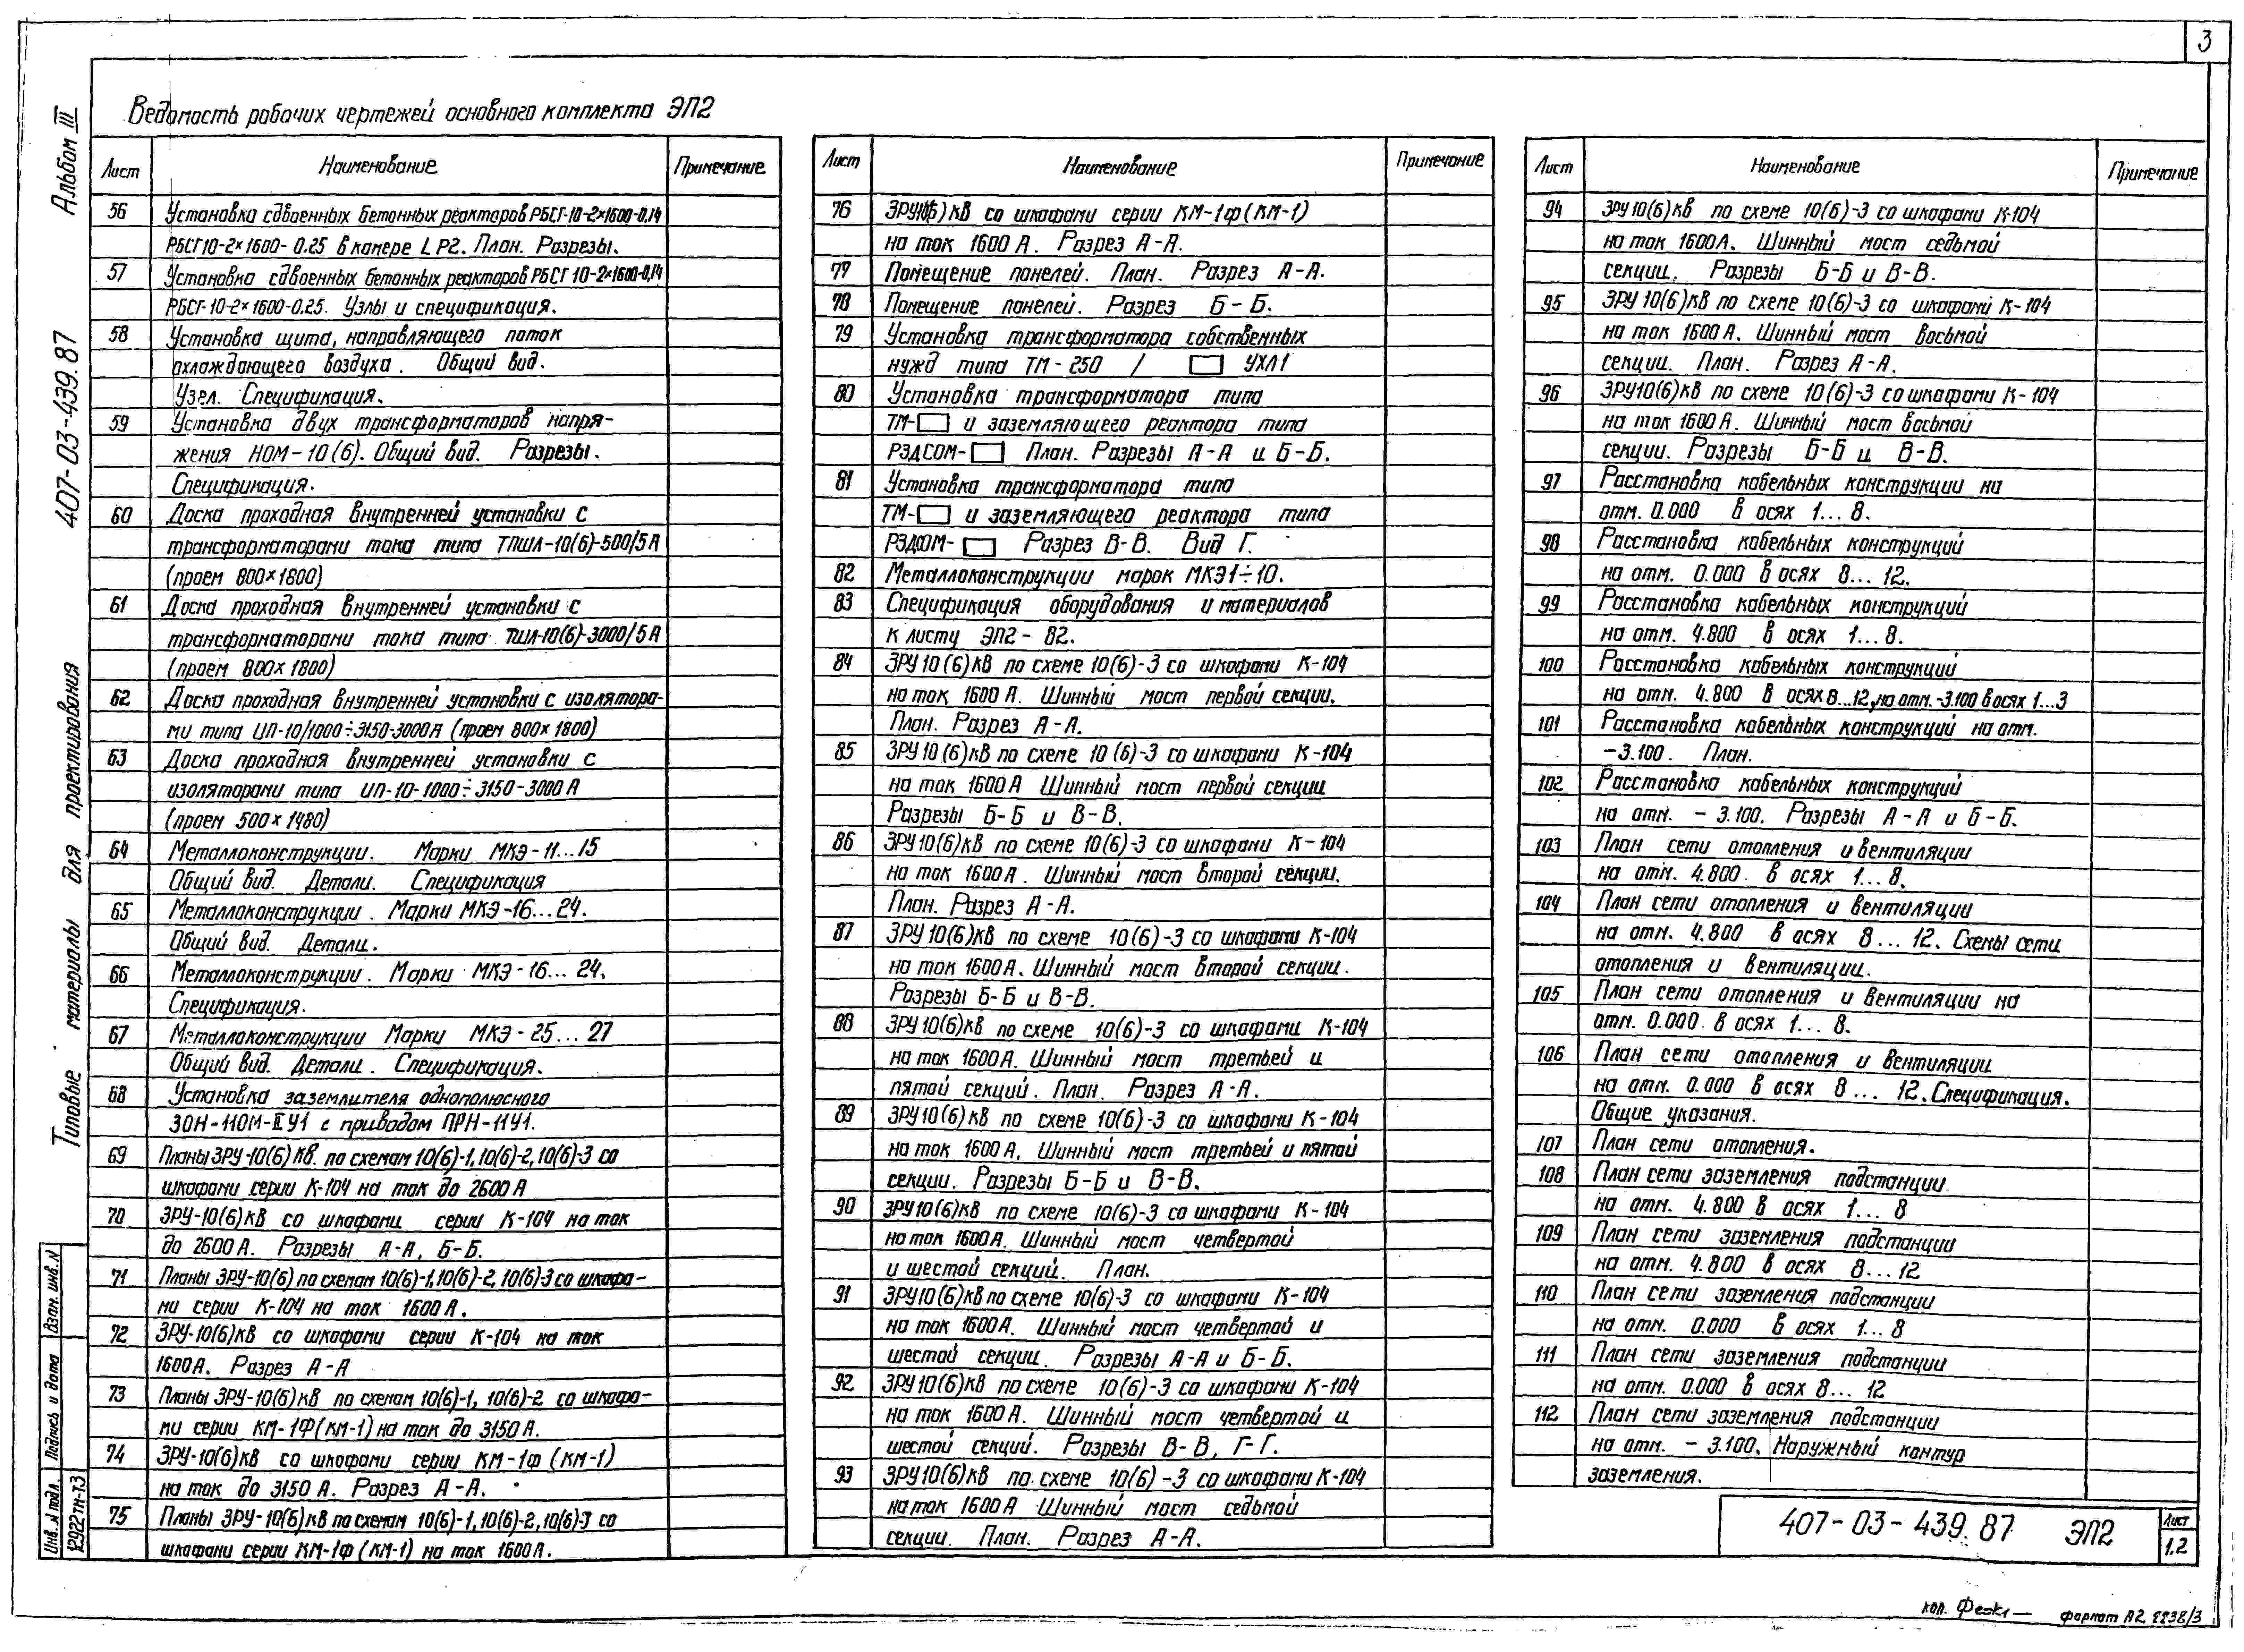 3
Альбом III
407-03-439.87
Типовые материалы для проектирования
Ведомость рабочих чертежей основного комплекта ЭП2
Лист Наименование Примечание
56 Установка сдвоенных бетонных реакторов РБСГ-10-2×1600-0,14
РБСГ10-2×1600-0.25 в камере LР2. План. Разрезы.
57 Установка сдвоенных бетонных реакторов РБСГ 10-2×1600-0,14
РБСГ-10-2×1600-0.25. Узлы и спецификация.
58 Установка щита, направляющего поток
охлаждающего воздуха. Общий вид.
Узел. Спецификация.
59 Установка двух трансформаторов напря-
жения НОМ-10(6). Общий вид. Разрезы.
Спецификация.
60 Доска проходная внутренней установки с
трансформаторами тока типа ТПШЛ-10(6)-500/5А
(проем 800×1800)
61 Доска проходная внутренней установки с
трансформаторами тока типа ТШЛ-10(6)-3000/5А
(проем 800×1800)
62 Доска проходная внутренней установки с изолятора-
ми типа ИП-10/1000÷3150-3000А (проем 800×1800)
63 Доска проходная внутренней установки с
изоляторами типа ИП-10-1000÷3150-3000А
(проем 500×1480)
64 Металлоконструкции. Марки МКЭ-11...15
Общий вид. Детали. Спецификация
65 Металлоконструкции. Марки МКЭ-16...24.
Общий вид. Детали.
66 Металлоконструкции. Марки МКЭ-16...24.
Спецификация.
67 Металлоконструкции Марки МКЭ-25...27
Общий вид. Детали. Спецификация.
68 Установка заземлителя однополюсного
ЗОН-110М-II У1 с приводом ПРН-11У1.
69 Планы ЗРУ-10(6) кВ. по схемам 10(6)-1, 10(6)-2, 10(6)-3 со
шкафами серии К-104 на ток до 2600А
70 ЗРУ-10(6)кВ со шкафами серии К-104 на ток
до 2600А. Разрезы А-А, Б-Б.
71 Планы ЗРУ-10(6) по схемам 10(6)-1, 10(6)-2, 10(6)-3 со шкафа-
ми серии К-104 на ток 1600А.
72 ЗРУ-10(6)кВ со шкафами серии К-104 на ток
1600А. Разрез А-А
73 Планы ЗРУ-10(6)кВ по схемам 10(6)-1, 10(6)-2 со шкафа-
ми серии КМ-1Ф(КМ-1) на ток до 3150А.
74 ЗРУ-10(6)кВ со шкафами серии КМ-1ф (КМ-1)
на ток до 3150А. Разрез А-А.
75 Планы ЗРУ-10(6)кВ по схемам 10(6)-1, 10(6)-2, 10(6)-3 со
шкафами серии КМ-1Ф (КМ-1) на ток 1600А.
Лист Наименование Примечание
76 ЗРУ10(6)кВ со шкафами серии КМ-1ф(КМ-1)
на ток 1600А. Разрез А-А.
77 Помещение панелей. План. Разрез А-А.
78 Помещение панелей. Разрез Б-Б.
79 Установка трансформатора собственных
нужд типа ТМ-250 / УХЛ1
80 Установка трансформатора типа
ТМ- и заземляющего реактора типа
РЗДСОМ- План. Разрезы А-А и Б-Б.
81 Установка трансформатора типа
ТМ- и заземляющего реактора типа
РЗДСОМ- Разрез В-В. Вид Г.
82 Металлоконструкции марок МКЭ1÷10.
83 Спецификация оборудования и материалов
к листу ЭП2-82.
84 ЗРУ10(6)кВ по схеме 10(6)-3 со шкафами К-104
на ток 1600А. Шинный мост первой секции.
План. Разрез А-А.
85 ЗРУ10(6)кВ по схеме 10(6)-3 со шкафами К-104
на ток 1600А Шинный мост первой секции
Разрезы Б-Б и В-В.
86 ЗРУ10(6)кВ по схеме 10(6)-3 со шкафами К-104
на ток 1600А. Шинный мост второй секции.
План. Разрез А-А.
87 ЗРУ10(6)кВ по схеме 10(6)-3 со шкафами К-104
на ток 1600А. Шинный мост второй секции.
Разрезы Б-Б и В-В.
88 ЗРУ10(6)кВ по схеме 10(6)-3 со шкафами К-104
на ток 1600А. Шинный мост третьей и
пятой секций. План. Разрез А-А.
89 ЗРУ10(6)кВ по схеме 10(6)-3 со шкафами К-104
на ток 1600А. Шинный мост третьей и пятой
секции. Разрезы Б-Б и В-В.
90 ЗРУ10(6)кВ по схеме 10(6)-3 со шкафами К-104
на ток 1600А. Шинный мост четвертой
и шестой секций. План.
91 ЗРУ10(6)кВ по схеме 10(6)-3 со шкафами К-104
на ток 1600А. Шинный мост четвертой и
шестой секции. Разрезы А-А и Б-Б.
92 ЗРУ10(6)кВ по схеме 10(6)-3 со шкафами К-104
на ток 1600А. Шинный мост четвертой и
шестой секций. Разрезы В-В, Г-Г.
93 ЗРУ10(6)кВ по схеме 10(6)-3 со шкафами К-104
на ток 1600А Шинный мост седьмой
секции. План. Разрез А-А.
Лист Наименование Примечание
94 ЗРУ10(6)кВ по схеме 10(6)-3 со шкафами К-104
на ток 1600А. Шинный мост седьмой
секции. Разрезы Б-Б и В-В.
95 ЗРУ10(6)кВ по схеме 10(6)-3 со шкафами К-104
на ток 1600А. Шинный мост восьмой
секции. План. Разрез А-А.
96 ЗРУ10(6)кВ по схеме 10(6)-3 со шкафами К-104
на ток 1600А. Шинный мост восьмой
секции. Разрезы Б-Б и В-В.
97 Расстановка кабельных конструкции на
отм. 0.000 в осях 1...8.
98 Расстановка кабельных конструкций
на отм. 0.000 в осях 8...12.
99 Расстановка кабельных конструкций
на отм. 4.800 в осях 1...8.
100 Расстановка кабельных конструкций
на отм. 4.800 в осях 8...12, на отм.-3.100 в осях 1...3
101 Расстановка кабельных конструкций на отм.
-3.100. План.
102 Расстановка кабельных конструкций
на отм. -3.100. Разрезы А-А и Б-Б.
103 План сети отопления и вентиляции
на отм. 4.800 в осях 1...8.
104 План сети отопления и вентиляции
на отм. 4.800 в осях 8...12. Схемы сети
отопления и вентиляции.
105 План сети отопления и вентиляции на
отм. 0.000 в осях 1...8.
106 План сети отопления и вентиляции
на отм. 0.000 в осях 8...12. Спецификация.
Общие указания.
107 План сети отопления.
108 План сети заземления подстанции
на отм. 4.800 в осях 1...8
109 План сети заземления подстанции
на отм. 4.800 в осях 8...12
110 План сети заземления подстанции
на отм. 0.000 в осях 1...8
111 План сети заземления подстанции
на отм. 0.000 в осях 8...12
112 План сети заземления подстанции
на отм. -3.100. Наружный контур
заземления.
Инв. N подл. Подпись и дата Взам. инв. N
12922тм-т3
407-03-439.87 ЭП2
Лист
1.2
коп. формат А2